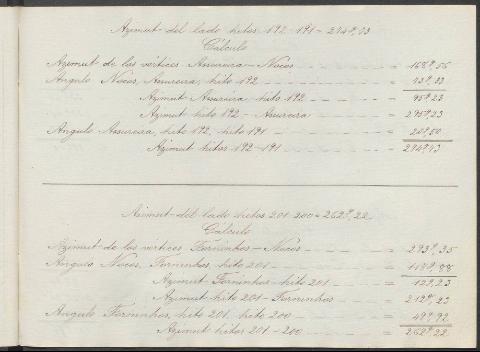 Azimut del lado hitos 192-191 = 274g,73
Cálculo
Azimut de los vertices Assureira-Nocos = 168g,56
Angulo Nocos, Assureira, hito 192 = 73g,33
Azimut Assureira hito 192 = 95g,23
Azimut hito 192-Assureira = 295g,23
Angulo Assureira, hito 192, hito 191 = 20g,50
Azimut hitos 192-191 = 274g,73
Azimut del lado hitos 201-200 = 262g,22
Cálculo
Azimut de los vertices Forninhos-Nocos = 293g,35
Angulo Nocos, Forninhos, hito 201 = 118g,88
Azimut Forninhos-hito 201 = 12g,23
Azimut hito 201-Forninhos = 212g,23
Angulo Forninhos, hito 201, hito 200 = 49g,92
Azimut hitos 201-200 = 262g,22